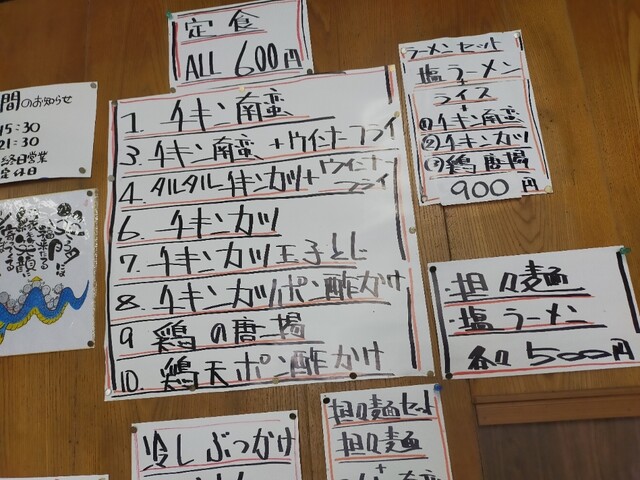 定食
ALL 600円
1. チキン南蛮
3. チキン南蛮+ウインナーフライ
4. タルタルチキンカツ+ウインナーフライ
6. チキンカツ
7. チキンカツ玉子とじ
8. チキンカツポン酢かけ
9 鶏の唐揚
10. 鶏天ポン酢かけ
ラーメンセット
塩ラーメン
+
ライス
+
①チキン南蛮
②チキンカツ
③鶏唐揚
900円
・担々麺
・塩ラーメン
各々500円
間のお知らせ
15:30
21:30
終日営業
定休日
冷しぶっかけ
担々麺セット
担々麺
+